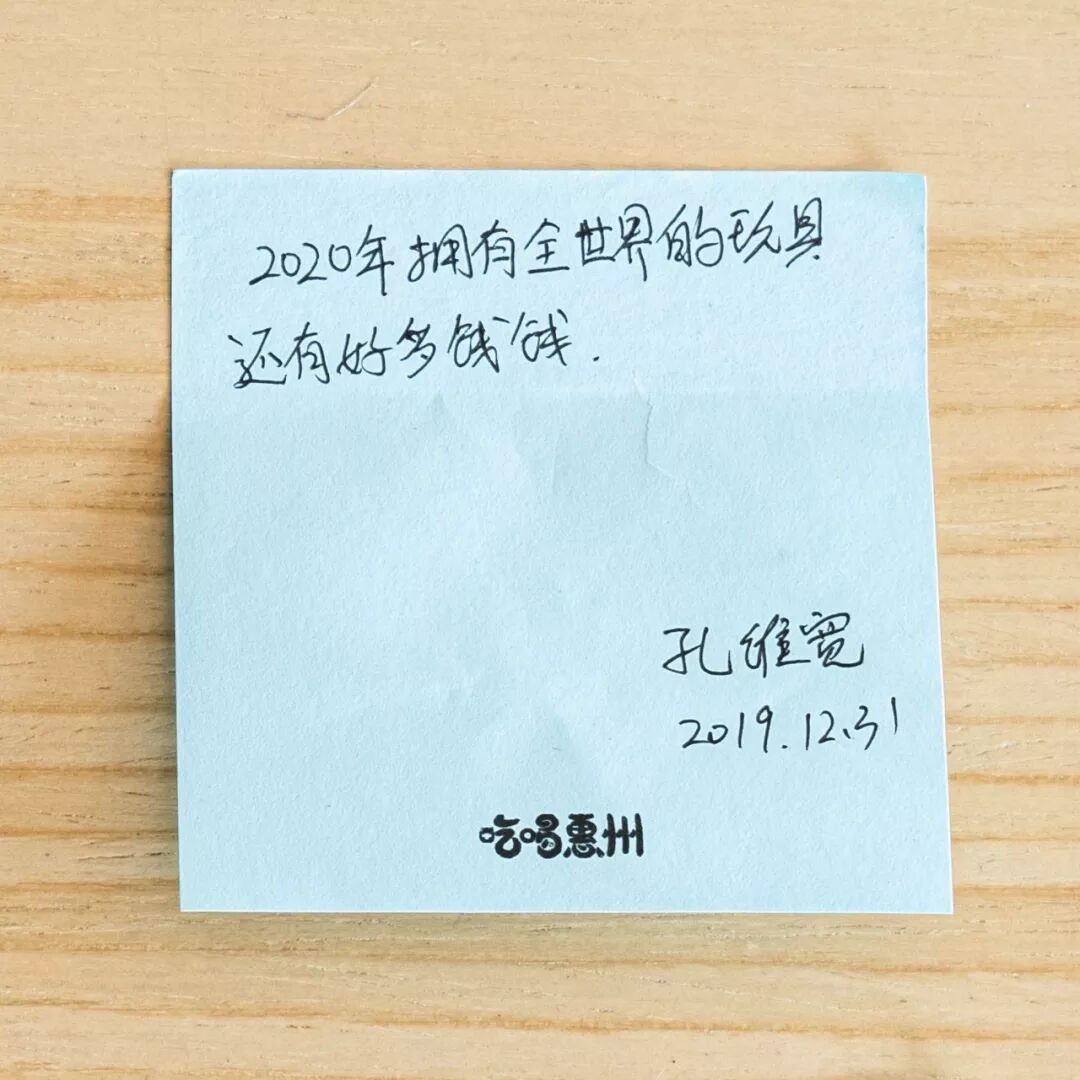 2020年拥有全世界的玩具
还有好多钱钱.
孔维宽
2019.12.31
吃喝惠州